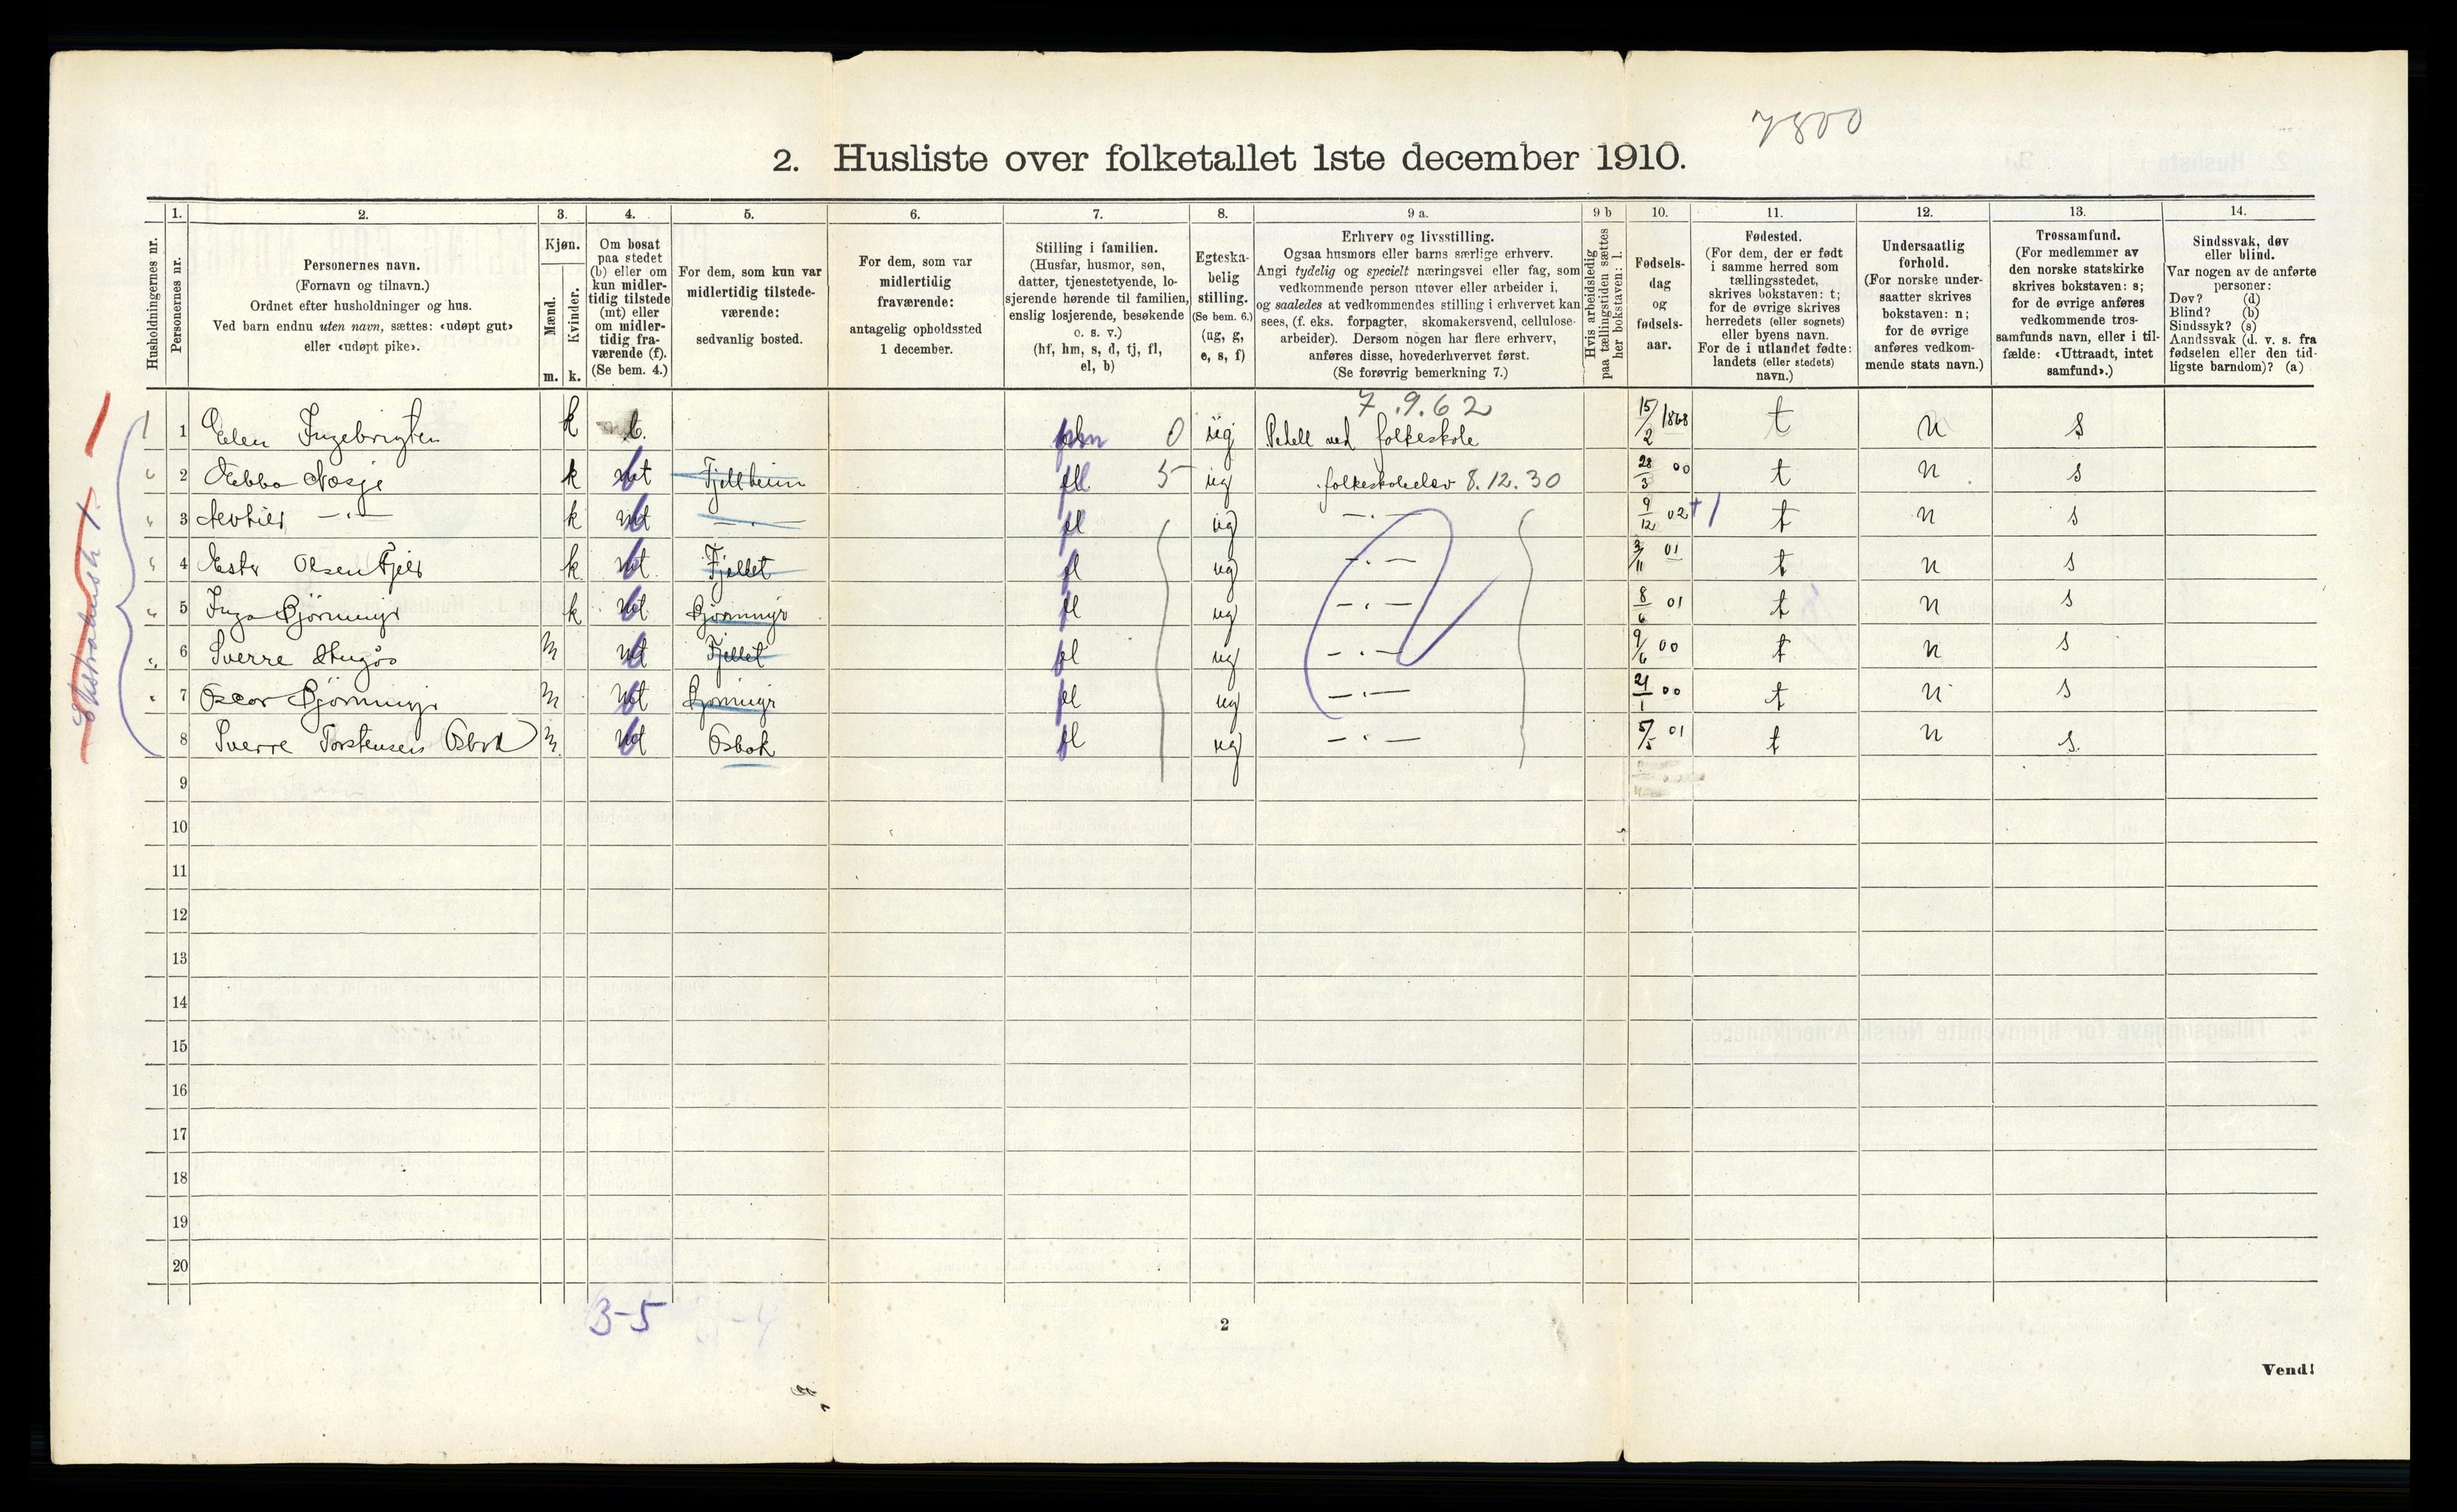 7800
2. Husliste over folketallet 1ste december 1910.
1. 2. 3. 4. 5. 6. 7. 8. 9 a. 9 b 10. 11. 12. 13. 14.
Husholdningernes nr.
Personernes nr.
Personernes navn.
(Fornavn og tilnavn.)
Ordnet efter husholdninger og hus.
Ved barn endnu uten navn, sættes: «udøpt gut»
eller «udøpt pike».
Kjøn.
Mænd.
Kvinder.
m. k.
Om bosat
paa stedet
(b) eller om
kun midler-
tidig tilstede
(mt) eller
om midler-
tidig fra-
værende (f).
(Se bem. 4.)
For dem, som kun var
midlertidig tilstede-
værende:
sedvanlig bosted.
For dem, som var
midlertidig
fraværende:
antagelig opholdssted
1 december.
Stilling i familien.
(Husfar, husmor, søn,
datter, tjenestetyende, lo-
sjerende hørende til familien,
enslig losjerende, besøkende
o. s. v.)
(hf, hm, s, d, tj, fl,
el, b)
Egteska-
belig
stilling.
(Se bem. 6.)
(ug, g,
e, s, f)
Erhverv og livsstilling.
Ogsaa husmors eller barns særlige erhverv.
Angi tydelig og specielt næringsvei eller fag, som
vedkommende person utøver eller arbeider i,
og saaledes at vedkommendes stilling i erhvervet kan
sees, (f. eks. forpagter, skomakersvend, cellulose-
arbeider). Dersom nogen har flere erhverv,
anføres disse, hovederhvervet først.
(Se forøvrig bemerkning 7.)
Hvis arbeidsledig
paa tællingstiden sættes
her bokstaven: l.
Fødsels-
dag
og
fødsels-
aar.
Fødested.
(For dem, der er født
i samme herred som
tællingsstedet,
skrives bokstaven: t;
for de øvrige skrives
herredets (eller sognets)
eller byens navn.
For de i utlandet fødte:
landets (eller stedets)
navn.)
Undersaatlig
forhold.
(For norske under-
saatter skrives
bokstaven: n;
for de øvrige
anføres vedkom-
mende stats navn.)
Trossamfund.
(For medlemmer av
den norske statskirke
skrives bokstaven: s;
for de øvrige anføres
vedkommende tros-
samfunds navn, eller i til-
fælde: «Uttraadt, intet
samfund».)
Sindssvak, døv
eller blind.
Var nogen av de anførte
personer:
Døv? (d)
Blind? (b)
Sindssyk? (s)
Aandssvak (d. v. s. fra
fødselen eller den tid-
ligste barndom)? (a)
7.9.62
1 Elen Ingebrigtsen k b. 0 ug Pedell ved folkeskole 15/2 1868 t n s
2 Ebba Næsje k mt Fjellheim fl 5 ug folkeskoleelev 8.12.30 28/3 00 t n s
3 —·— k mt —·— fl ug —·— 9/12 02 +1 t n s
4 Ester Olsen Fjeld k mt Fjellet fl ug —·— 3/11 01 t n s
5 Inga Bjørnmyr k mt Bjørnmyr fl ug —·— 8/6 01 t n s
6 Sverre m mt Fjellet fl ug —·— 9/6 00 t n s
7 Oscar Bjørnmyr m mt Bjørnmyr fl ug —·— 21/1 00 t n s
8 Sverre Torstensen Osbak m mt Osbak fl ug —·— 5/5 01 t n s.
9
10
11
12
13
14
15
16
17
18
19
20
3-5
2
Vend!